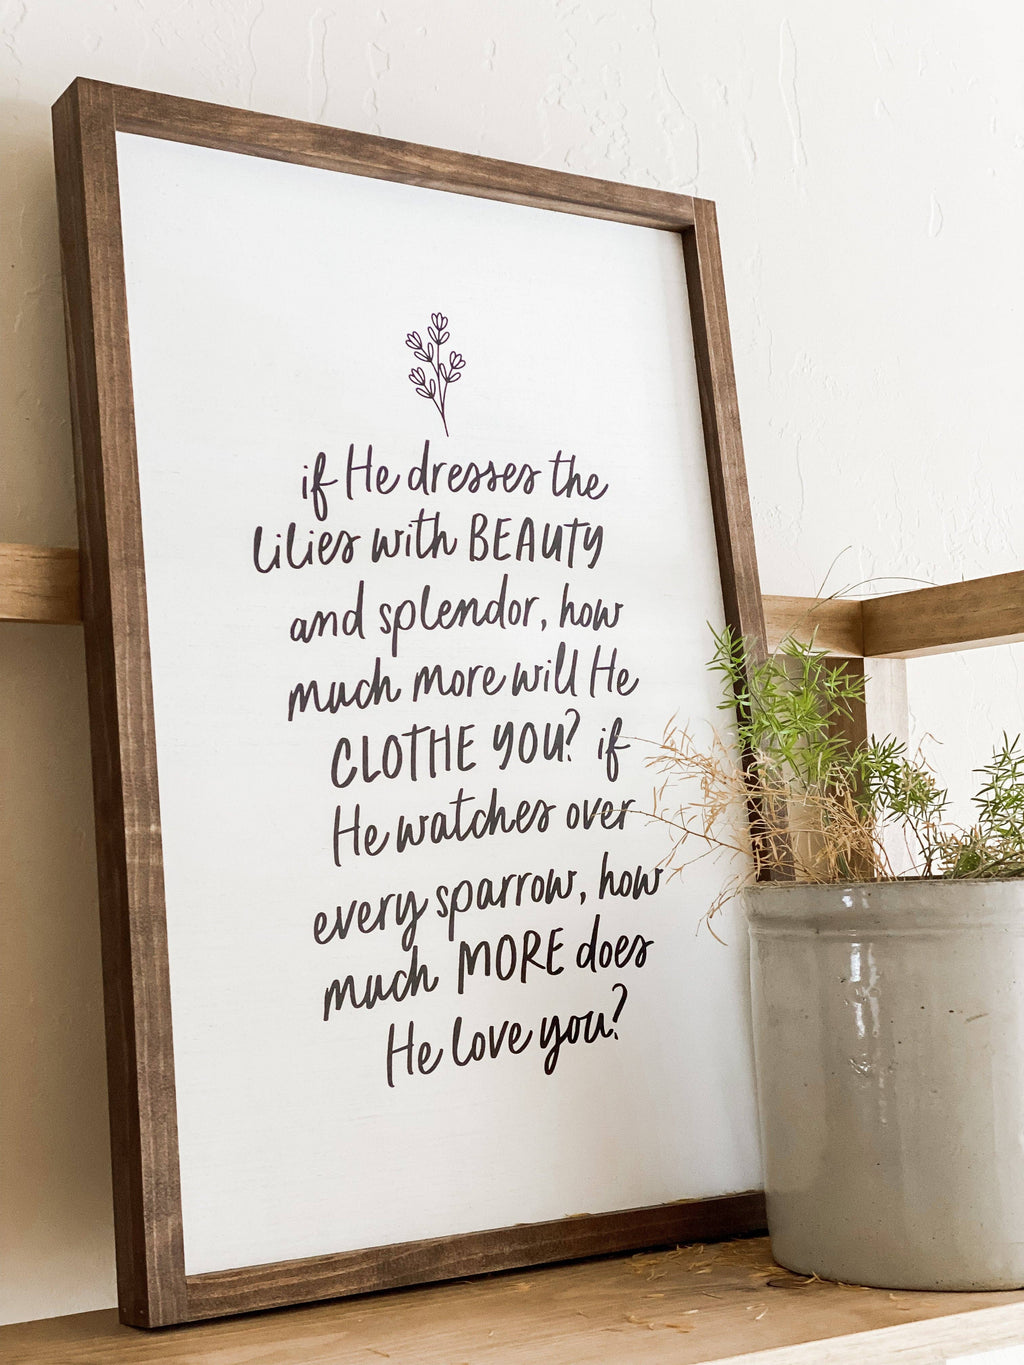 if He dresses the
lilies with BEAUTY
and splendor, how
much more will He
CLOTHE YOU? if
He watches over
every sparrow, how
much MORE does
He love you?